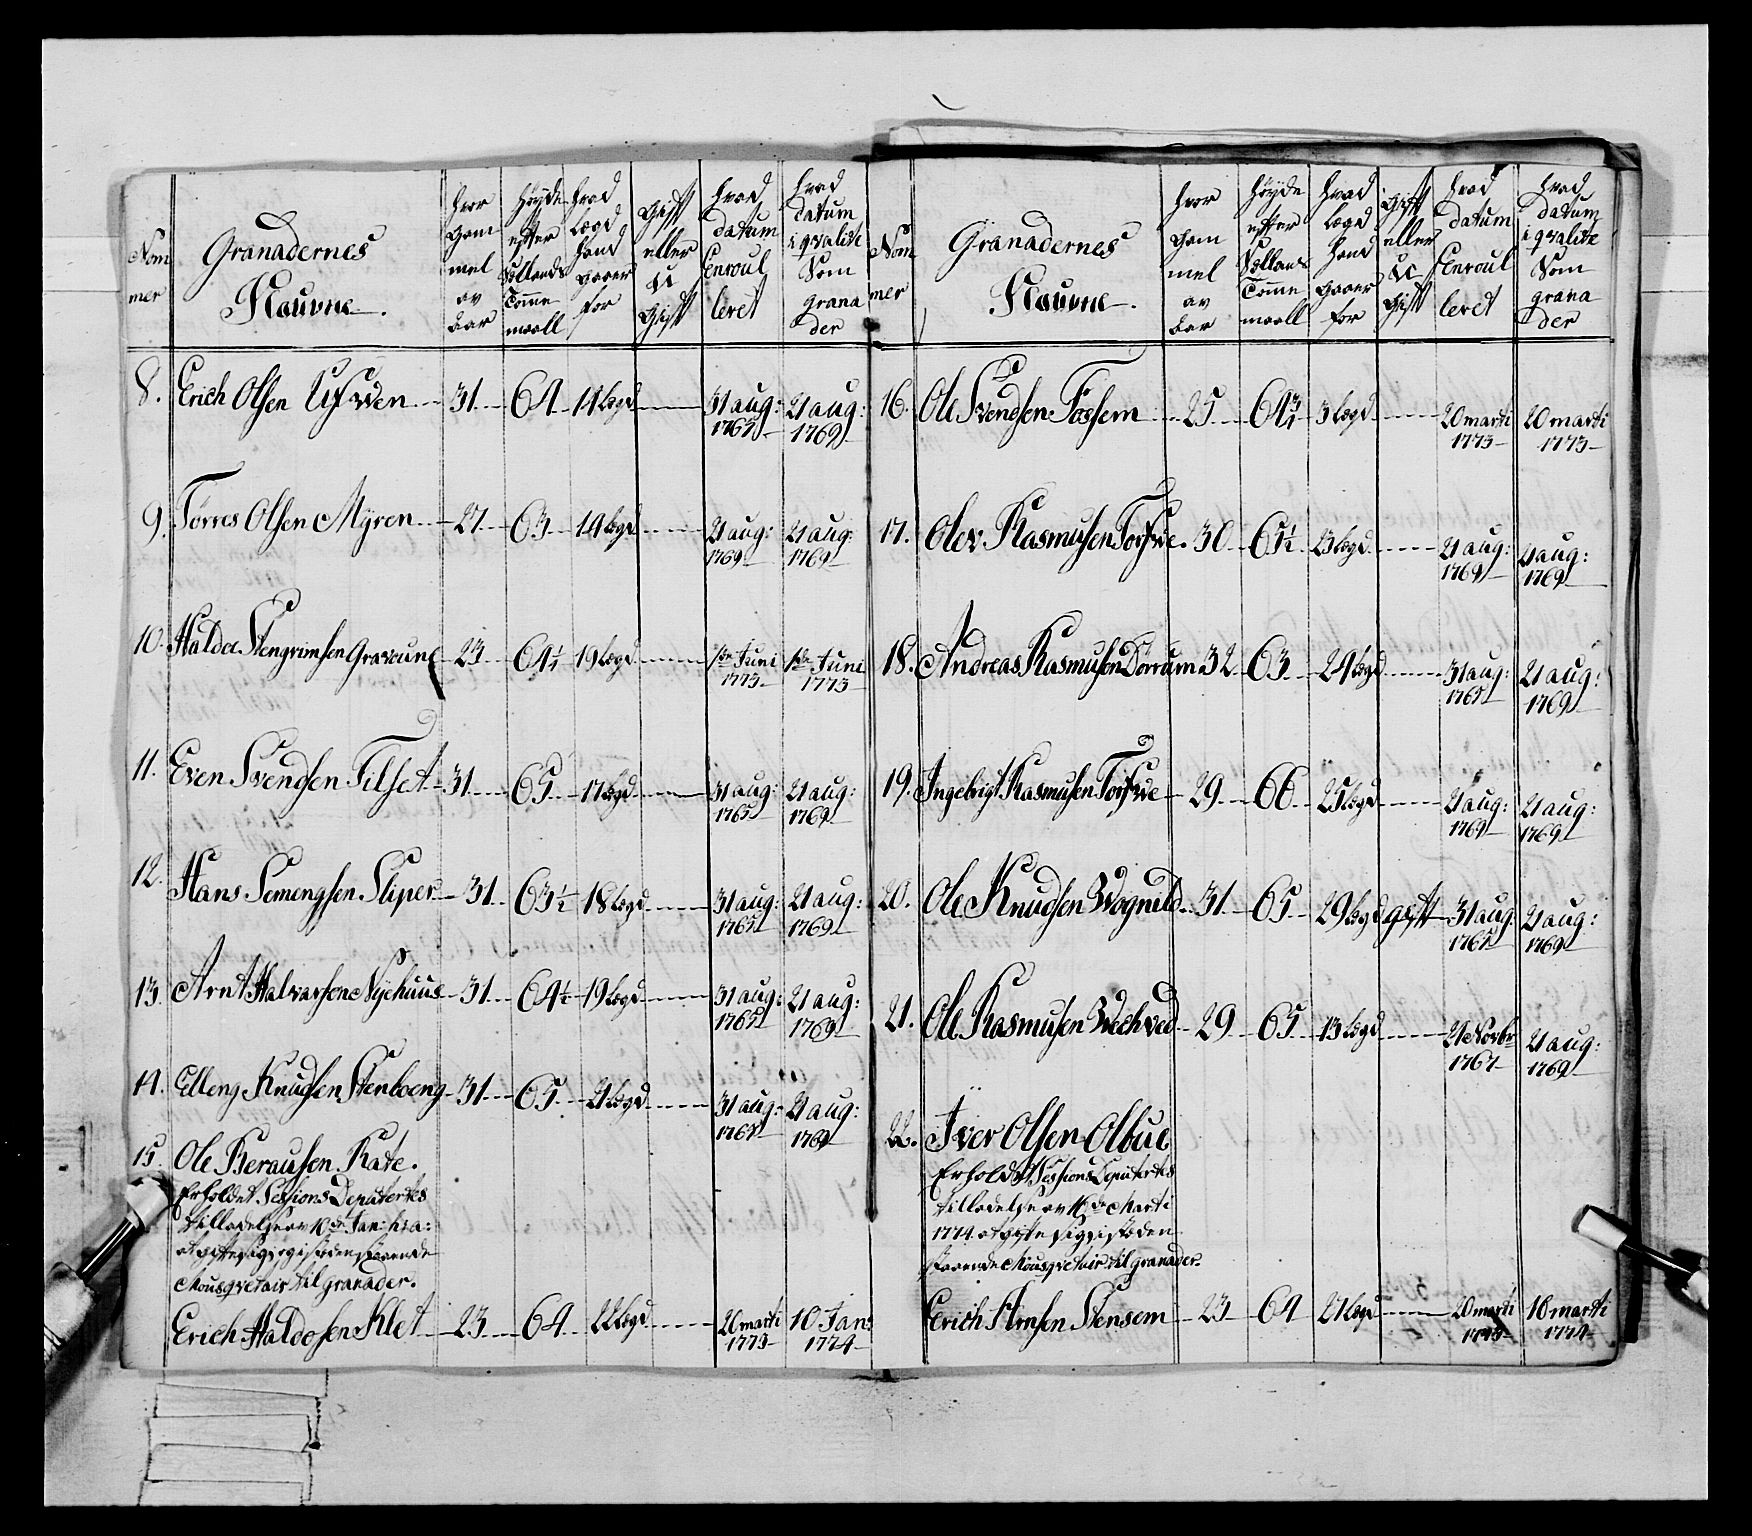 Nom
mer
Granadernes
Nauvne.
hvor
gam
mel
av
aar
Høyde
efter
Sollands
Tomme
maall
hvad
Lægd
hand
gaaer
for
Gift
eller
U
Gift
hvad
datum
Enroul
leret
hvad
datum
i qvalite
Som
grana
der
8. Erich Olsen Ufsven 31 64 14 Lægd 31 aug: 1765 21 aug: 1769
9. Tørres Olsen Myren 27 63 14 Lægd 21 aug: 1769 21 aug: 1769
10. Haldoe Stengrimsen Gravaune 23 64½ 19 Lægd 1de Juni 1773 1de Juni 1773
11. Even Svendsen Filset 31 65 17 Lægd 31 aug: 1765 21 aug: 1769
12. Hans Semengsen Sliper 31 63½ 18 Lægd 31 aug: 1765 21 aug: 1769
13. Arnt Halvarsen Nyehuus 31 64½ 19 Lægd 31 aug: 1765 21 aug: 1769
14. Elleng Knudsen Stenboeng 31 65 21 Lægd 31 aug: 1765 21 aug: 1769
15. Ole Berausen Kate.
Erholdet Sessions Deputertes
tilladelse av 10de Jan: h: a:
at gifte sig, og i steden staaende
Mousqvetair til granader.
Erich Haldosen Klet 23 64 22 Lægd 20 marti 1773 10 Jan: 1774
Nom
mer
Granadernes
Nauvne.
hvor
gam
mel
av
aar
Høyde
efter
Sollans
Tomme
maall
hvad
Lægd
hand
gaaer
for
Gift
eller
U
Gift
hvad
datum
Enroul
leret
hvad
datum
i qvalite
Som
grana
der
16. Ole Svendsen Fossem 25 64¾ 3 Lægd 20 marti 1773 20 marti 1773
17. Olev Rasmusen Torfve 30 65½ 23 Lægd 21 aug: 1769 21 aug: 1769
18. Andreas Rasmusen Dørrum 32 63 24 Lægd 31 aug: 1765 21 aug: 1769
19. Ingebrigt Rasmusen Torfve 29 66 25 Lægd 21 aug: 1769 21 aug: 1769
20. Ole Knudsen Vognild 31 65 29 Lægd gift 31 aug: 1765 21 aug: 1769
21. Ole Rasmusen Vechved 29 65 13 Lægd 21 Novbr 1767 21 aug: 1769
22. Iver Olsen Olbue
Erholdt Sessions Deputertes
tilladelse av 16de Marti
1774 at gifte sig, i steden
staaende Mousqvetair til granader.
Erich Arnsen Stensem 23 64 27 Lægd 20 marti 1773 16 marti 1774